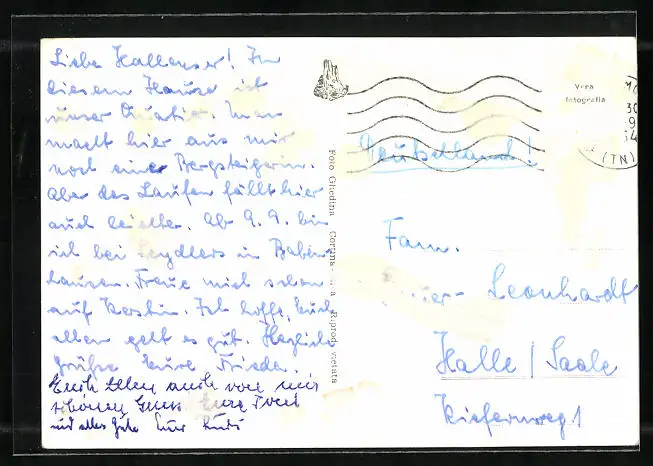 Liebe Hallenser! In
diesem Hause ist
unser Quartier. Man
macht hier aus mir
noch eine Bergsteigerin.
Aber das Laufen fällt hier
auch leichter. Ab 9. 9. bin
ich bei Seydlers in Baben-
hausen. Freue mich schon
auf Kerstin. Ich hoffe, Euch
allen geht es gut. Herzliche
Grüße Eure Frieda.
Euch Allen auch von mir
schönen Gruß
und alles Gute Euer
Foto Ghedina Cortina
Riprod. vietata
Vera
fotografia
30
9
(TN)
Deutschland!
Fam.
Leonhardt
Halle/Saale
Kiefernweg 1